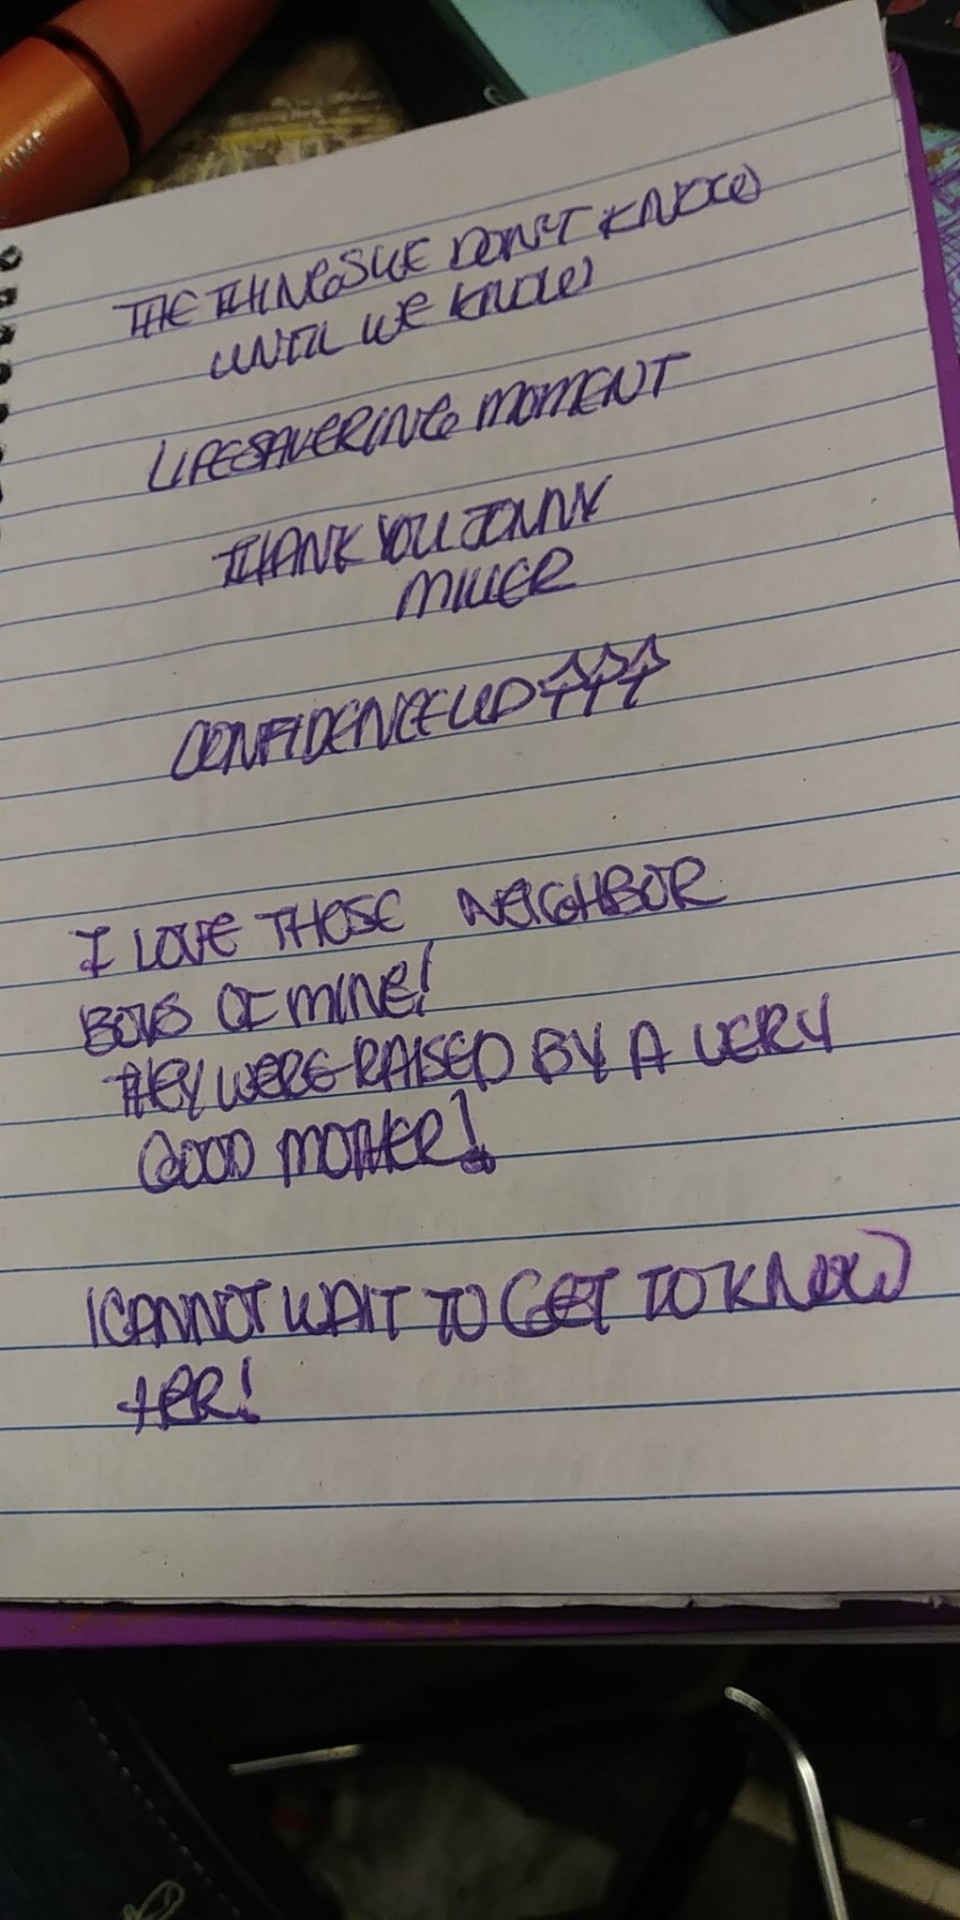 UME
THE THINGS WE DON'T KNOW
UNTIL WE KNOW
LIFESAVERING MOMENT
THANK YOU JONNY
MILLER
CONFIDENCE UP ⇧⇧⇧
I LOVE THOSE NEIGHBOR
BOYS OF MINE!
THEY WERE RAISED BY A VERY
GOOD MOTHER!
I CANNOT WAIT TO GET TO KNOW
HER!